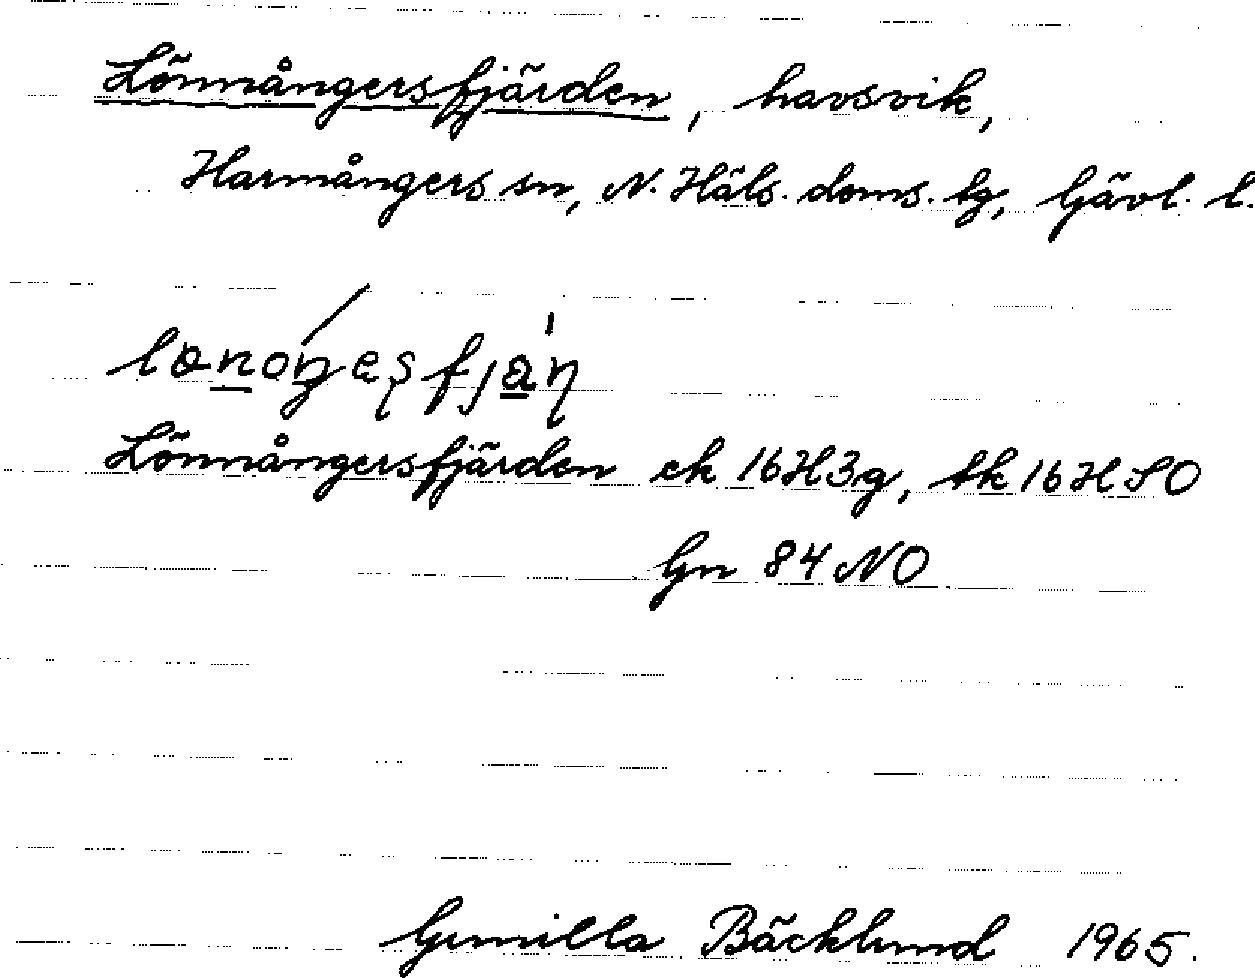 Lönnångersfjärden, havsvik,
Harmångers sn, N. Häls. doms. lg, Gävl. l.
Lönnångersfjärden ek 16H3g, tk 16H SO
Gn 84 NO
Gunilla Bäcklund 1965.